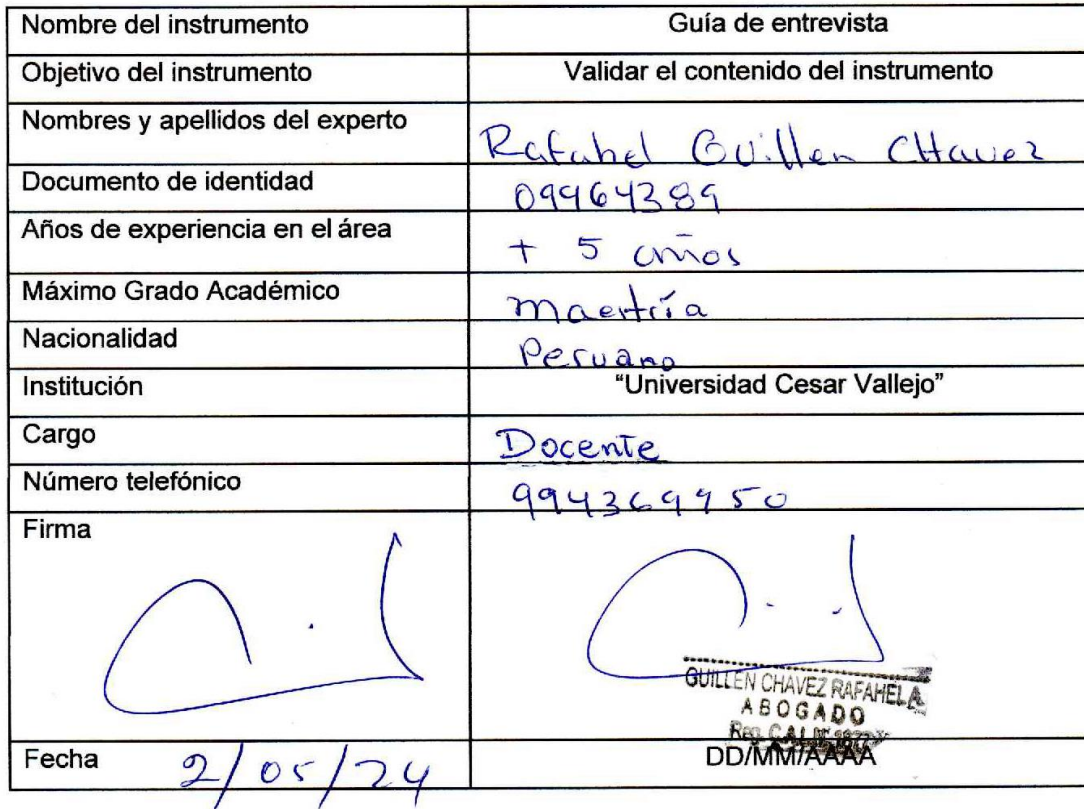 Nombre del instrumento Guía de entrevista
Objetivo del instrumento Validar el contenido del instrumento
Nombres y apellidos del experto Rafahel Guillen CHavez
Documento de identidad 09964389
Años de experiencia en el área + 5 años
Máximo Grado Académico Maestría
Nacionalidad Peruano
Institución “Universidad Cesar Vallejo”
Cargo Docente
Número telefónico 994369950
Firma
GUILLEN CHAVEZ RAFAHEL A.
ABOGADO
Reg. C.A.L.
Fecha 2/05/24 DD/MM/AAAA